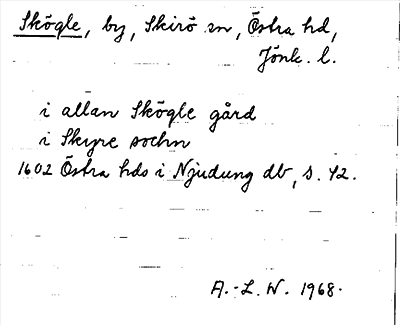 Skögle, by, Skirö sn, Östra hd,
Jönk. l.
i allan Skögle gård
i Skyre sochn
1602 Östra hds i Njudung db, s. 42.
A.-L. W. 1968.